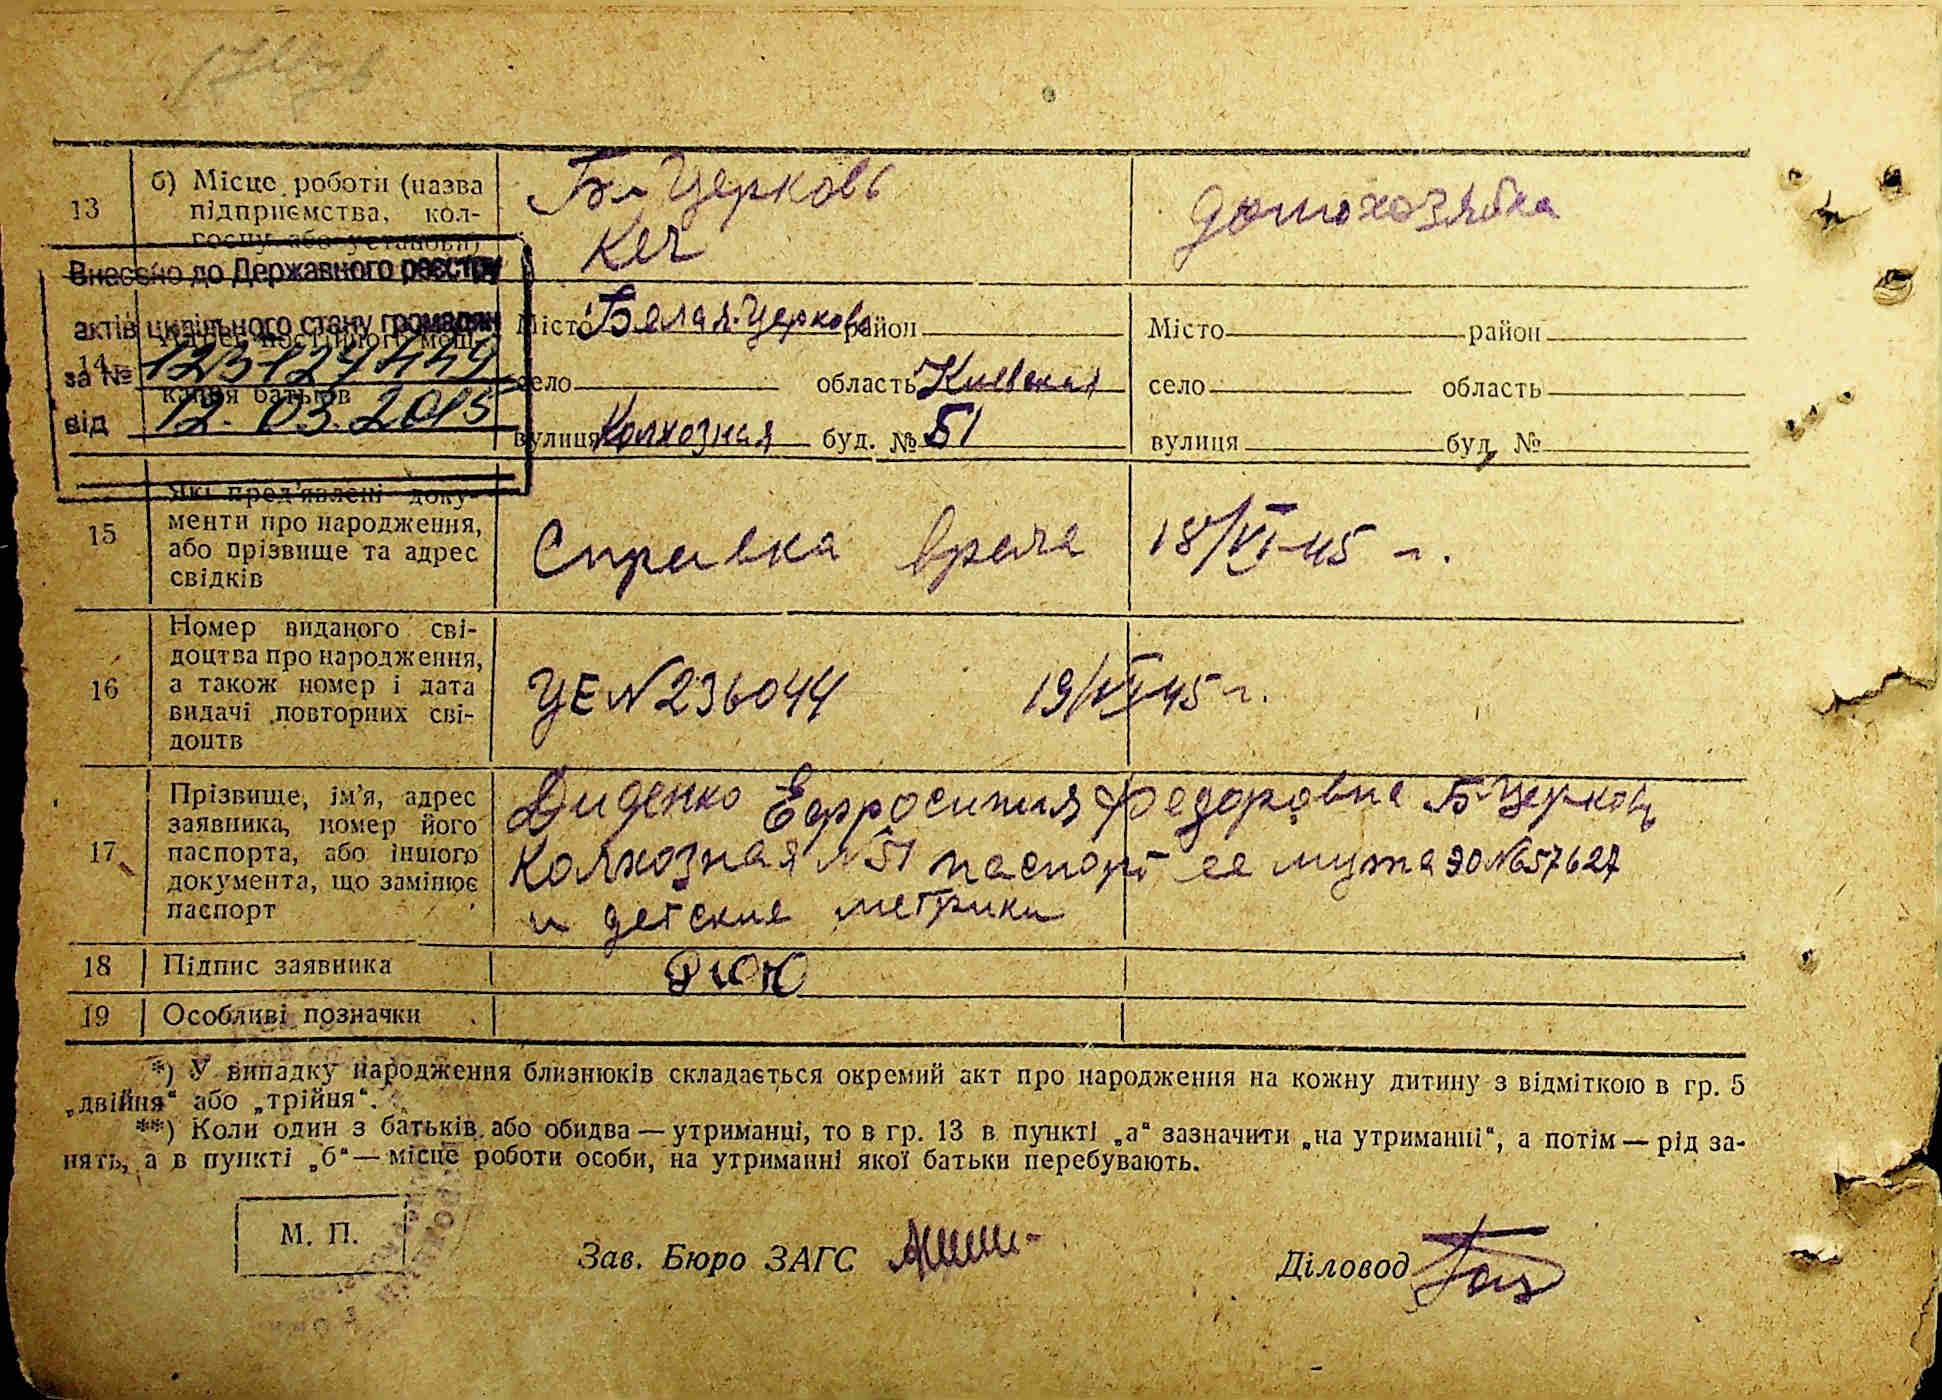 13 б) Місце роботи (назва підприємства, колгоспу або установи)
Б. Церковь
КЕЧ
домохозяйка
Внесено до Державного реєстру
актів цивільного стану громадян
за № 123127449
від 12.03.2015
14 Адрес постійного мешкання батьків
Місто Белая-Церковь район
село область Киевская
вулиця Колхозная буд. № 51
Місто район
село область
вулиця буд. №
15 Які пред'явлені доку-
менти про народження,
або прізвище та адрес
свідків
Справка врача 18/VI-45 г.
16 Номер виданого сві-
доцтва про народження,
а також номер і дата
видачі повторних сві-
доцтв
УЕ N 236044 19/VI-45 г.
17 Прізвище, ім'я, адрес
заявника, номер його
паспорта, або іншого
документа, що замінює
паспорт
Диденко Ефросиния Федоровна Б-Церковь
Колхозная N 51 паспорт ее мужа ЭО N 657627
и детские метрики
18 Підпис заявника
19 Особливі позначки
*) У випадку народження близнюків складається окремий акт про народження на кожну дитину з відміткою в гр. 5
„двійня“ або „трійня“.
**) Коли один з батьків або обидва — утриманці, то в гр. 13 в пункті „а“ зазначити „на утриманні“, а потім — рід за-
нять, а в пункті „б“ — місце роботи особи, на утриманні якої батьки перебувають.
М. П.
Зав. Бюро ЗАГС
Діловод